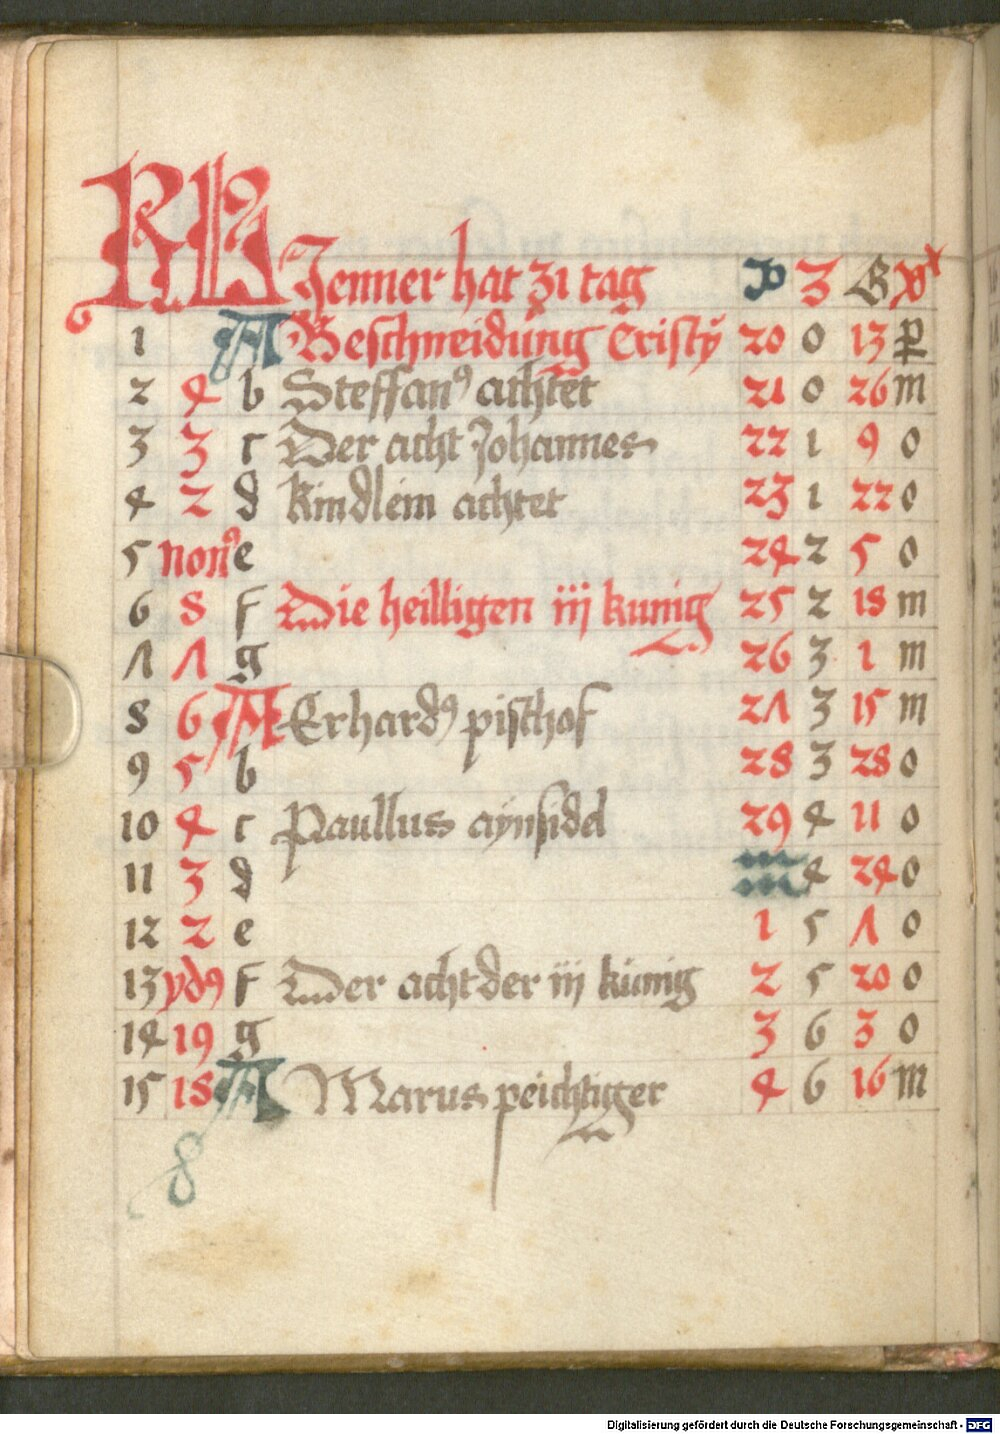 KL Jenner hat 31 tag ♑ 3 G
1 A Beschneidung Cristy 20 0 13 p
2 4 b Steffanꝰ achtet 21 0 26 m
3 3 c Der acht Johannes 22 1 9 0
4 2 d kindlein achtet 23 1 22 0
5 nonꝰ e 24 2 5 0
6 8 f Die heilligen iij kunig 25 2 18 m
7 7 g 26 3 1 m
8 6 A Erhardꝰ pisthof 27 3 15 m
9 5 b 28 3 28 0
10 4 c Paullus aynsidel 29 4 11 0
11 3 d ♒ 4 24 0
12 2 e 1 5 7 0
13 ydꝰ f Der acht der iij künig 2 5 20 0
14 19 g 3 6 3 0
15 18 A Marus peichtiger 4 6 16 m
Digitalisierung gefördert durch die Deutsche Forschungsgemeinschaft - DFG